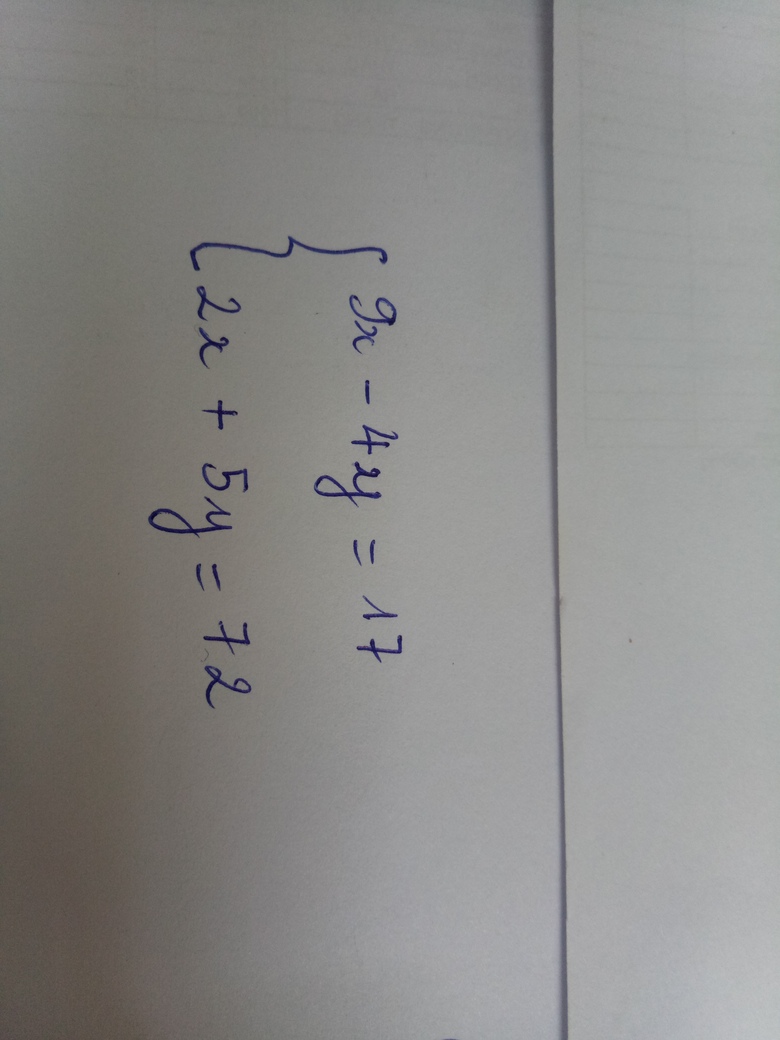 9x - 4y = 17
2x + 5y = 72